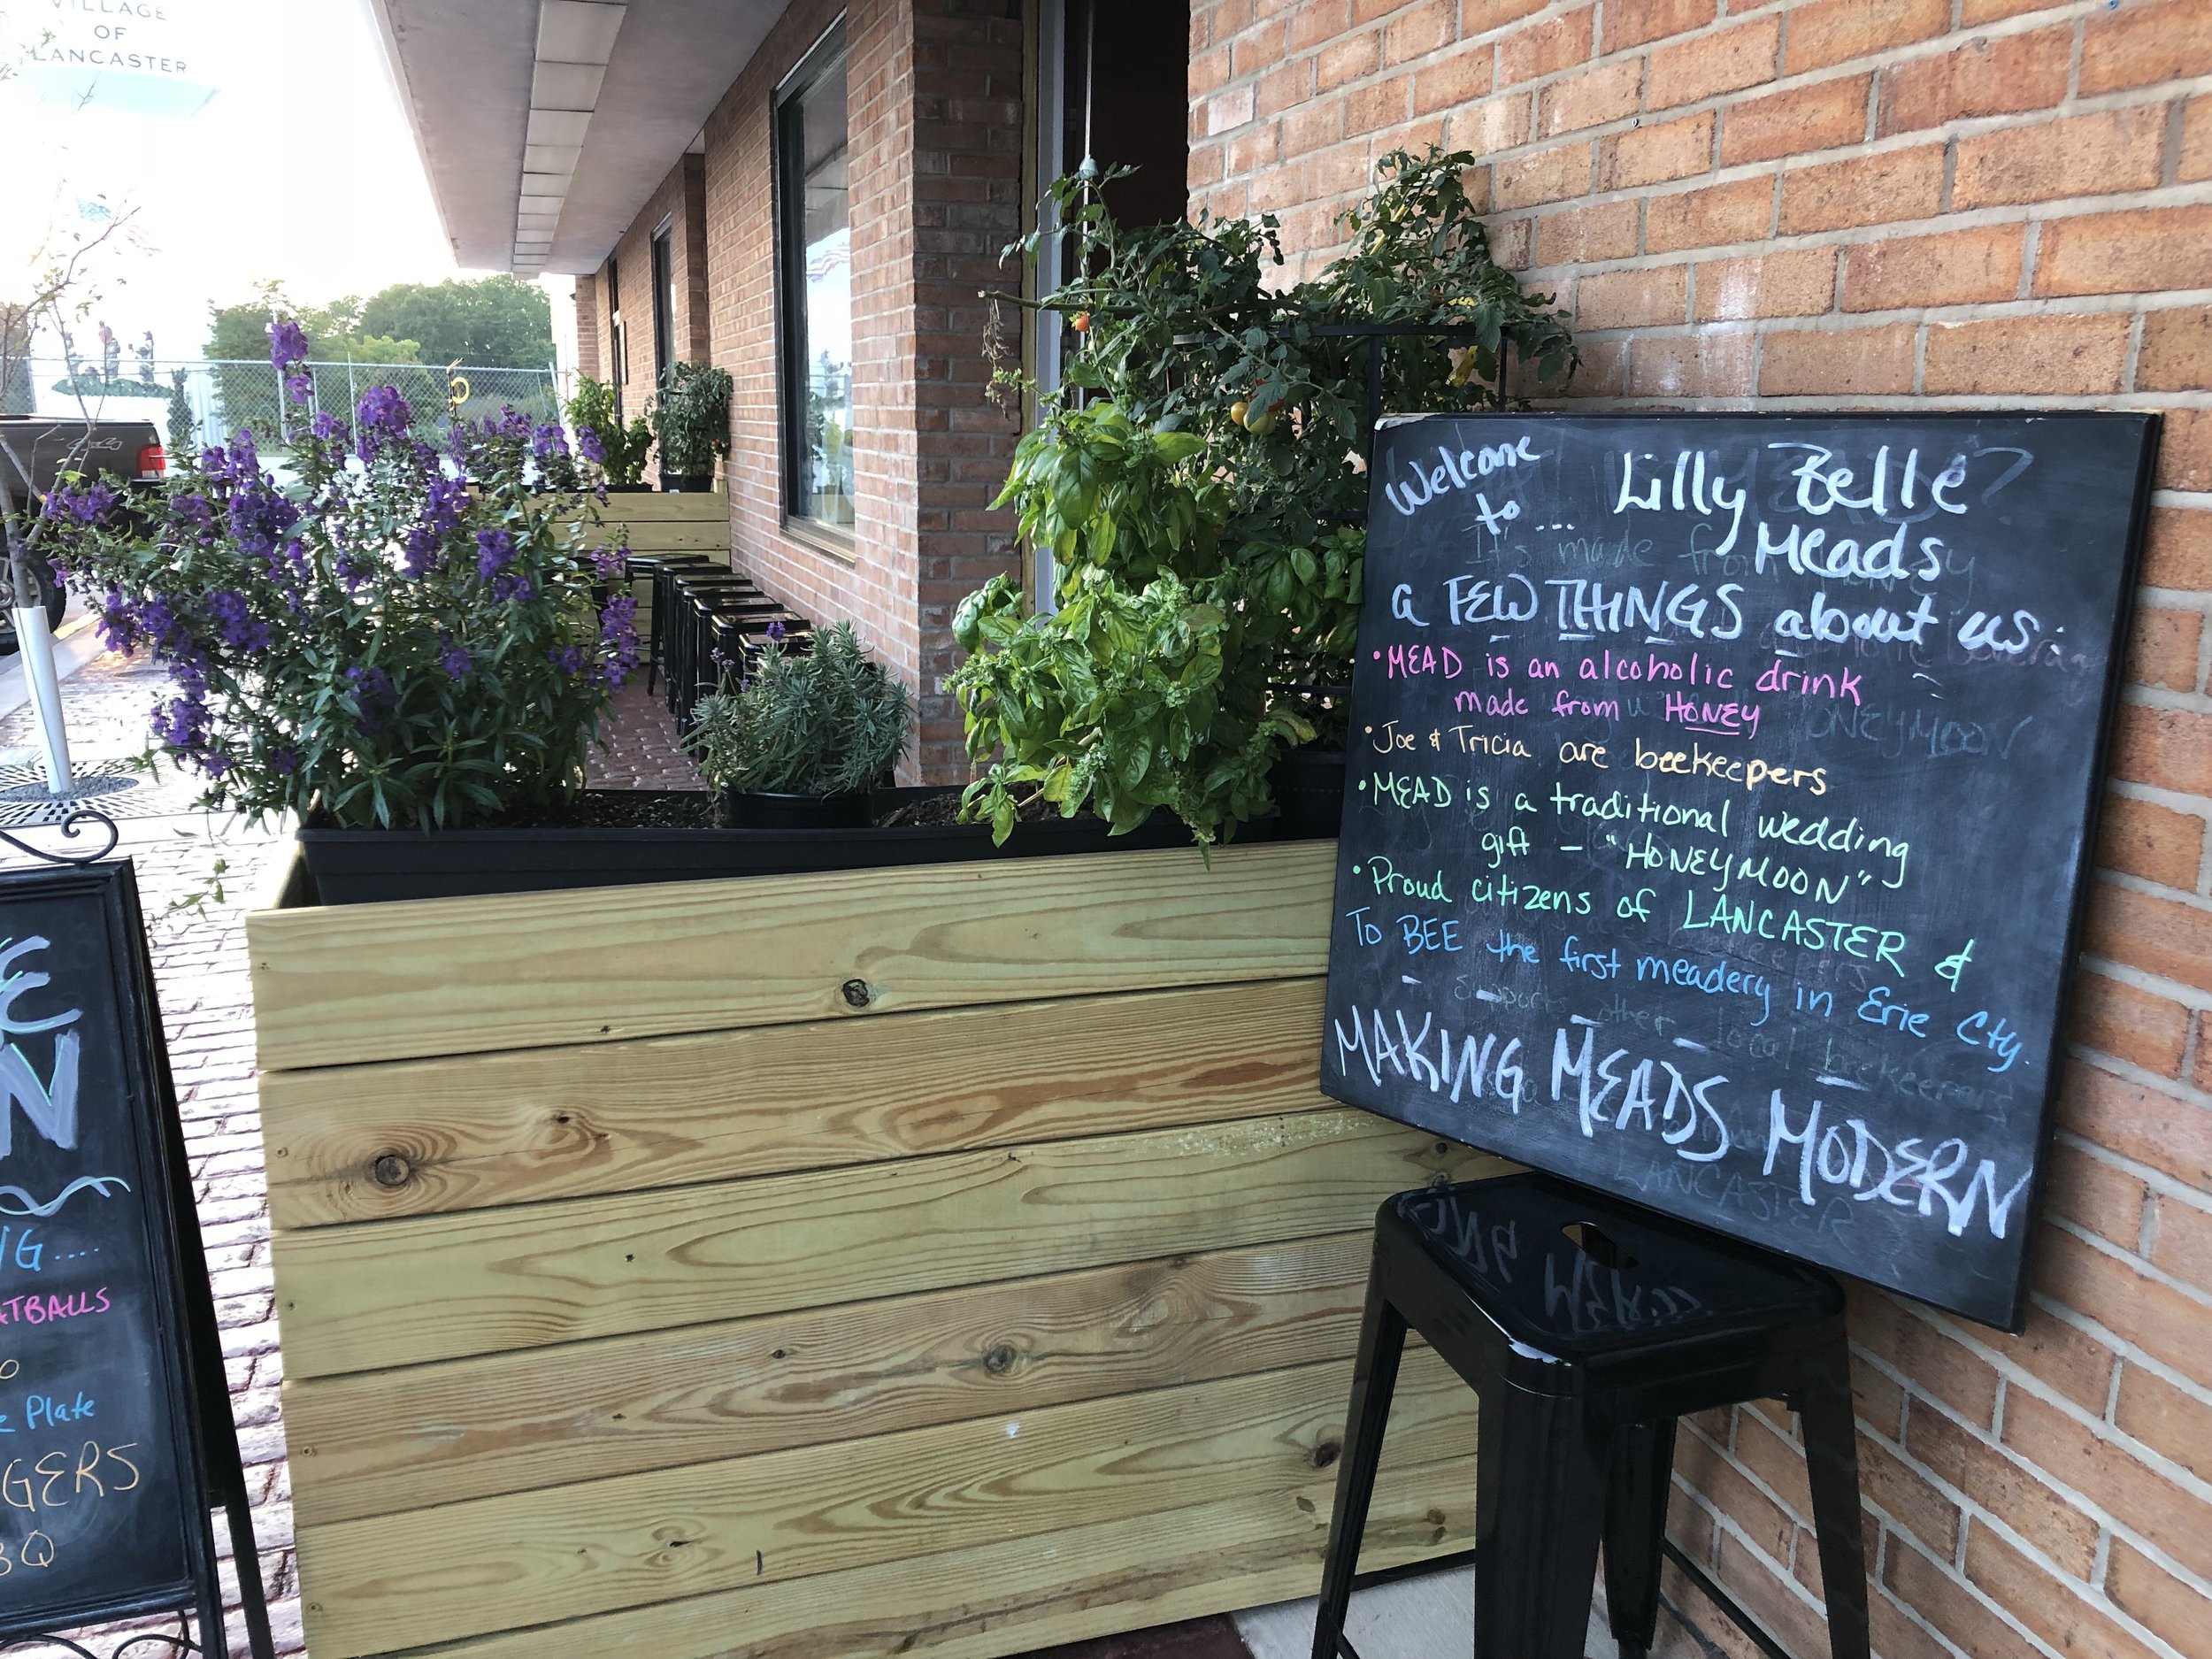 VILLAGE
OF
LANCASTER
Welcome
to ... Lilly Belle
Meads
a FEW THINGS about us:
• MEAD is an alcoholic drink
made from HONEY
• Joe & Tricia are beekeepers
• MEAD is a traditional wedding
gift - "HONEYMOON"
• Proud citizens of LANCASTER &
To BEE the first meadery in Erie Cty.
MAKING MEADS MODERN
E
N
NG....
ATBALLS
o
e Plate
GERS
BQ